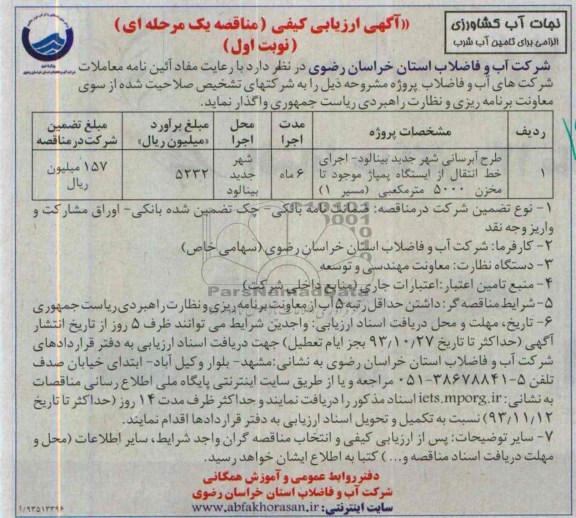 نجات آب کشاورزی
الزامی برای تامین آب شرب
«آگهی ارزیابی کیفی (مناقصه یک مرحله ای)
(نوبت اول)
شرکت آب و فاضلاب استان خراسان رضوی در نظر دارد با رعایت مفاد آئین نامه معاملات
شرکت های آب و فاضلاب پروژه مشروحه ذیل را به شرکتهای تشخیص صلاحیت شده از سوی
معاونت برنامه ریزی و نظارت راهبردی ریاست جمهوری واگذار نماید.
ردیف
مشخصات پروژه
مدت اجرا
محل اجرا
مبلغ برآورد «میلیون ریال»
مبلغ تضمین شرکت در مناقصه
۱
طرح آبرسانی شهر جدید بینالود- اجرای
خط انتقال از ایستگاه پمپاژ موجود تا
مخزن ۵۰۰۰ مترمکعبی (مسیر ۱)
۶ ماه
شهر جدید بینالود
۵۲۳۲
۱۵۷ میلیون ریال
۱- نوع تضمین شرکت در مناقصه: ضمانت نامه بانکی- چک تضمین شده بانکی- اوراق مشارکت و
واریز وجه نقد
۲- کارفرما: شرکت آب و فاضلاب استان خراسان رضوی (سهامی خاص)
۳- دستگاه نظارت: معاونت مهندسی و توسعه
۴- منبع تامین اعتبار: اعتبارات جاری (منابع داخلی شرکت)
۵- شرایط مناقصه گر: داشتن حداقل رتبه ۵ آب از معاونت برنامه ریزی و نظارت راهبردی ریاست جمهوری
۶- تاریخ، مهلت و محل دریافت اسناد ارزیابی: واجدین شرایط می توانند ظرف ۵ روز از تاریخ انتشار
آگهی (حداکثر تا تاریخ ۹۳/۱۰/۲۷ بجز ایام تعطیل) جهت دریافت اسناد ارزیابی به دفتر قراردادهای
شرکت آب و فاضلاب استان خراسان رضوی به نشانی: مشهد- بلوار وکیل آباد- ابتدای خیابان صدف
تلفن ۵-۳۸۶۷۸۸۴۱-۰۵۱ مراجعه و یا از طریق سایت اینترنتی پایگاه ملی اطلاع رسانی مناقصات
به نشانی: iets.mporg.ir اسناد مذکور را دریافت نمایند و حداکثر ظرف مدت ۱۴ روز (حداکثر تا تاریخ
۹۳/۱۱/۱۲) نسبت به تکمیل و تحویل اسناد ارزیابی به دفتر قراردادها اقدام نمایند.
۷- سایر توضیحات: پس از ارزیابی کیفی و انتخاب مناقصه گران واجد شرایط، سایر اطلاعات (محل و
مهلت دریافت اسناد مناقصه و...) کتبا به اطلاع ایشان خواهد رسید.
دفتر روابط عمومی و آموزش همگانی
شرکت آب و فاضلاب استان خراسان رضوی
سایت اینترنتی: www.abfakhorasan.ir
۹۳۵۱۳۳۹۶/ا
ParsNamadData